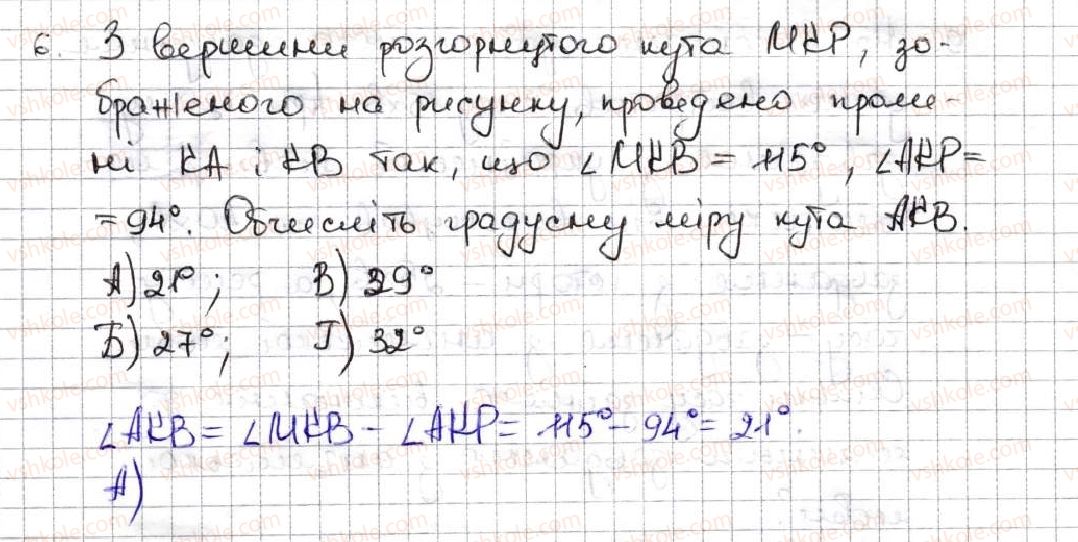 6. З вершини розгорнутого кута MKP, зо-
браженого на рисунку, проведено проме-
ні KA і KB так, що ∠MKB = 115°, ∠AKP =
= 94°. Обчисліть градусну міру кута AKB.
А) 21°; В) 29°
Б) 27°; Г) 32°
∠AKB = ∠MKB - ∠AKP = 115° - 94° = 21°.
А)